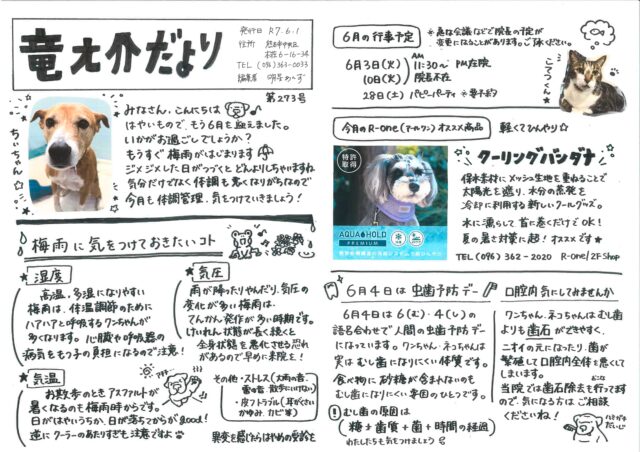 竜之介だより
発行日 R7.6.1
住所 熊本市中央区
本荘6-16-34
TEL (096)363-0033
第273号
ちぃちゃん☆
みなさん、こんにちは
はやいもので、もう6月を迎えました。
いかがお過ごしでしょうか?
もうすぐ梅雨がはじまります
ジメジメした日がつづくと どんよりしちゃいますね
気分だけでなく体調も悪くなりがちなので
今月も体調管理、気をつけていきましょう!
梅雨に気をつけておきたいコト
★湿度
高温、多湿になりやすい
梅雨は、体温調節のために
ハアハアと呼吸するワンちゃんが
多くなります。心臓や呼吸器の
病気をもつ子の負担になるので注意!
★気圧
雨が降ったりやんだり、気圧の
変化が多い梅雨は、
てんかん発作が多い時期です。
けいれん状態が長く続くと
全身状態を悪化させる恐れ
があるので早めに来院を!
★気温
お散歩のときアスファルトが
暑くなるのも梅雨時からです。
日がはやいうちか、日が落ちてからがgood!
逆にクーラーのあたりすぎも注意ですよ
その他・ストレス(大雨の音、
雷の音、散歩にいけない)
・皮フトラブル(耳がくさい
かゆみ、カビ等)
異変を感じたらはやめの受診を
6月の行事予定
※急な会議などで院長の予定が
変更になることがあります。ご了承ください。
6月3日(火) AM 11:30~ PM在院
10日(火) 院長不在
28日(土) パピーパーティ ※要予約
こてつくん★
今月のR-one(アールワン)オススメ商品
軽くてひんやり☆
特許取得
AQUA HOLD
PREMIUM
クーリングバンダナ
保水素材にメッシュ生地を重ねることで
太陽光を遮り、水分の蒸発を
冷却に利用する新しいクールグッズ。
水に濡らして首に巻くだけでOK!
夏の暑さ対策に超!オススメです★
TEL(096)362-2020 R-one/2F Shop
6月4日は虫歯予防デー
6月4日は6(む)・4(し)の
語呂合わせで人間の虫歯予防デー
になっています。ワンちゃん・ネコちゃんは
実はむし歯になりにくい体質です。
食べ物に砂糖が含まれないのも
むし歯になりにくい要因のひとつです。
!むし歯の原因は
(糖+歯質+菌+時間の経過)
わたしたちも気をつけましょう
口腔内気にしてみませんか
ワンちゃん、ネコちゃんはむし歯
よりも歯石ができやすく、
ニオイの元になったり、菌が
繁殖して口腔内全体を悪くして
しまいます。
当院では歯石除去も行ってます
ので、気になる方はご相談
くださいね!
ハミガキ
だいじ